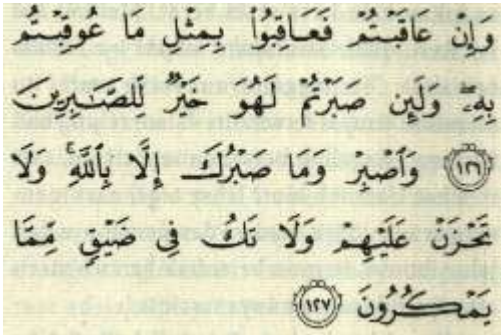 وَإِنْ عَاقَبْتُمْ فَعَاقِبُوا۟ بِمِثْلِ مَا عُوقِبْتُم
بِهِۦ ۖ وَلَئِن صَبَرْتُمْ لَهُوَ خَيْرٌ لِّلصَّـٰبِرِينَ
﴿١٢٦﴾ وَٱصْبِرْ وَمَا صَبْرُكَ إِلَّا بِٱللَّهِ ۚ وَلَا
تَحْزَنْ عَلَيْهِمْ وَلَا تَكُ فِى ضَيْقٍ مِّمَّا
يَمْكُرُونَ ﴿١٢٧﴾